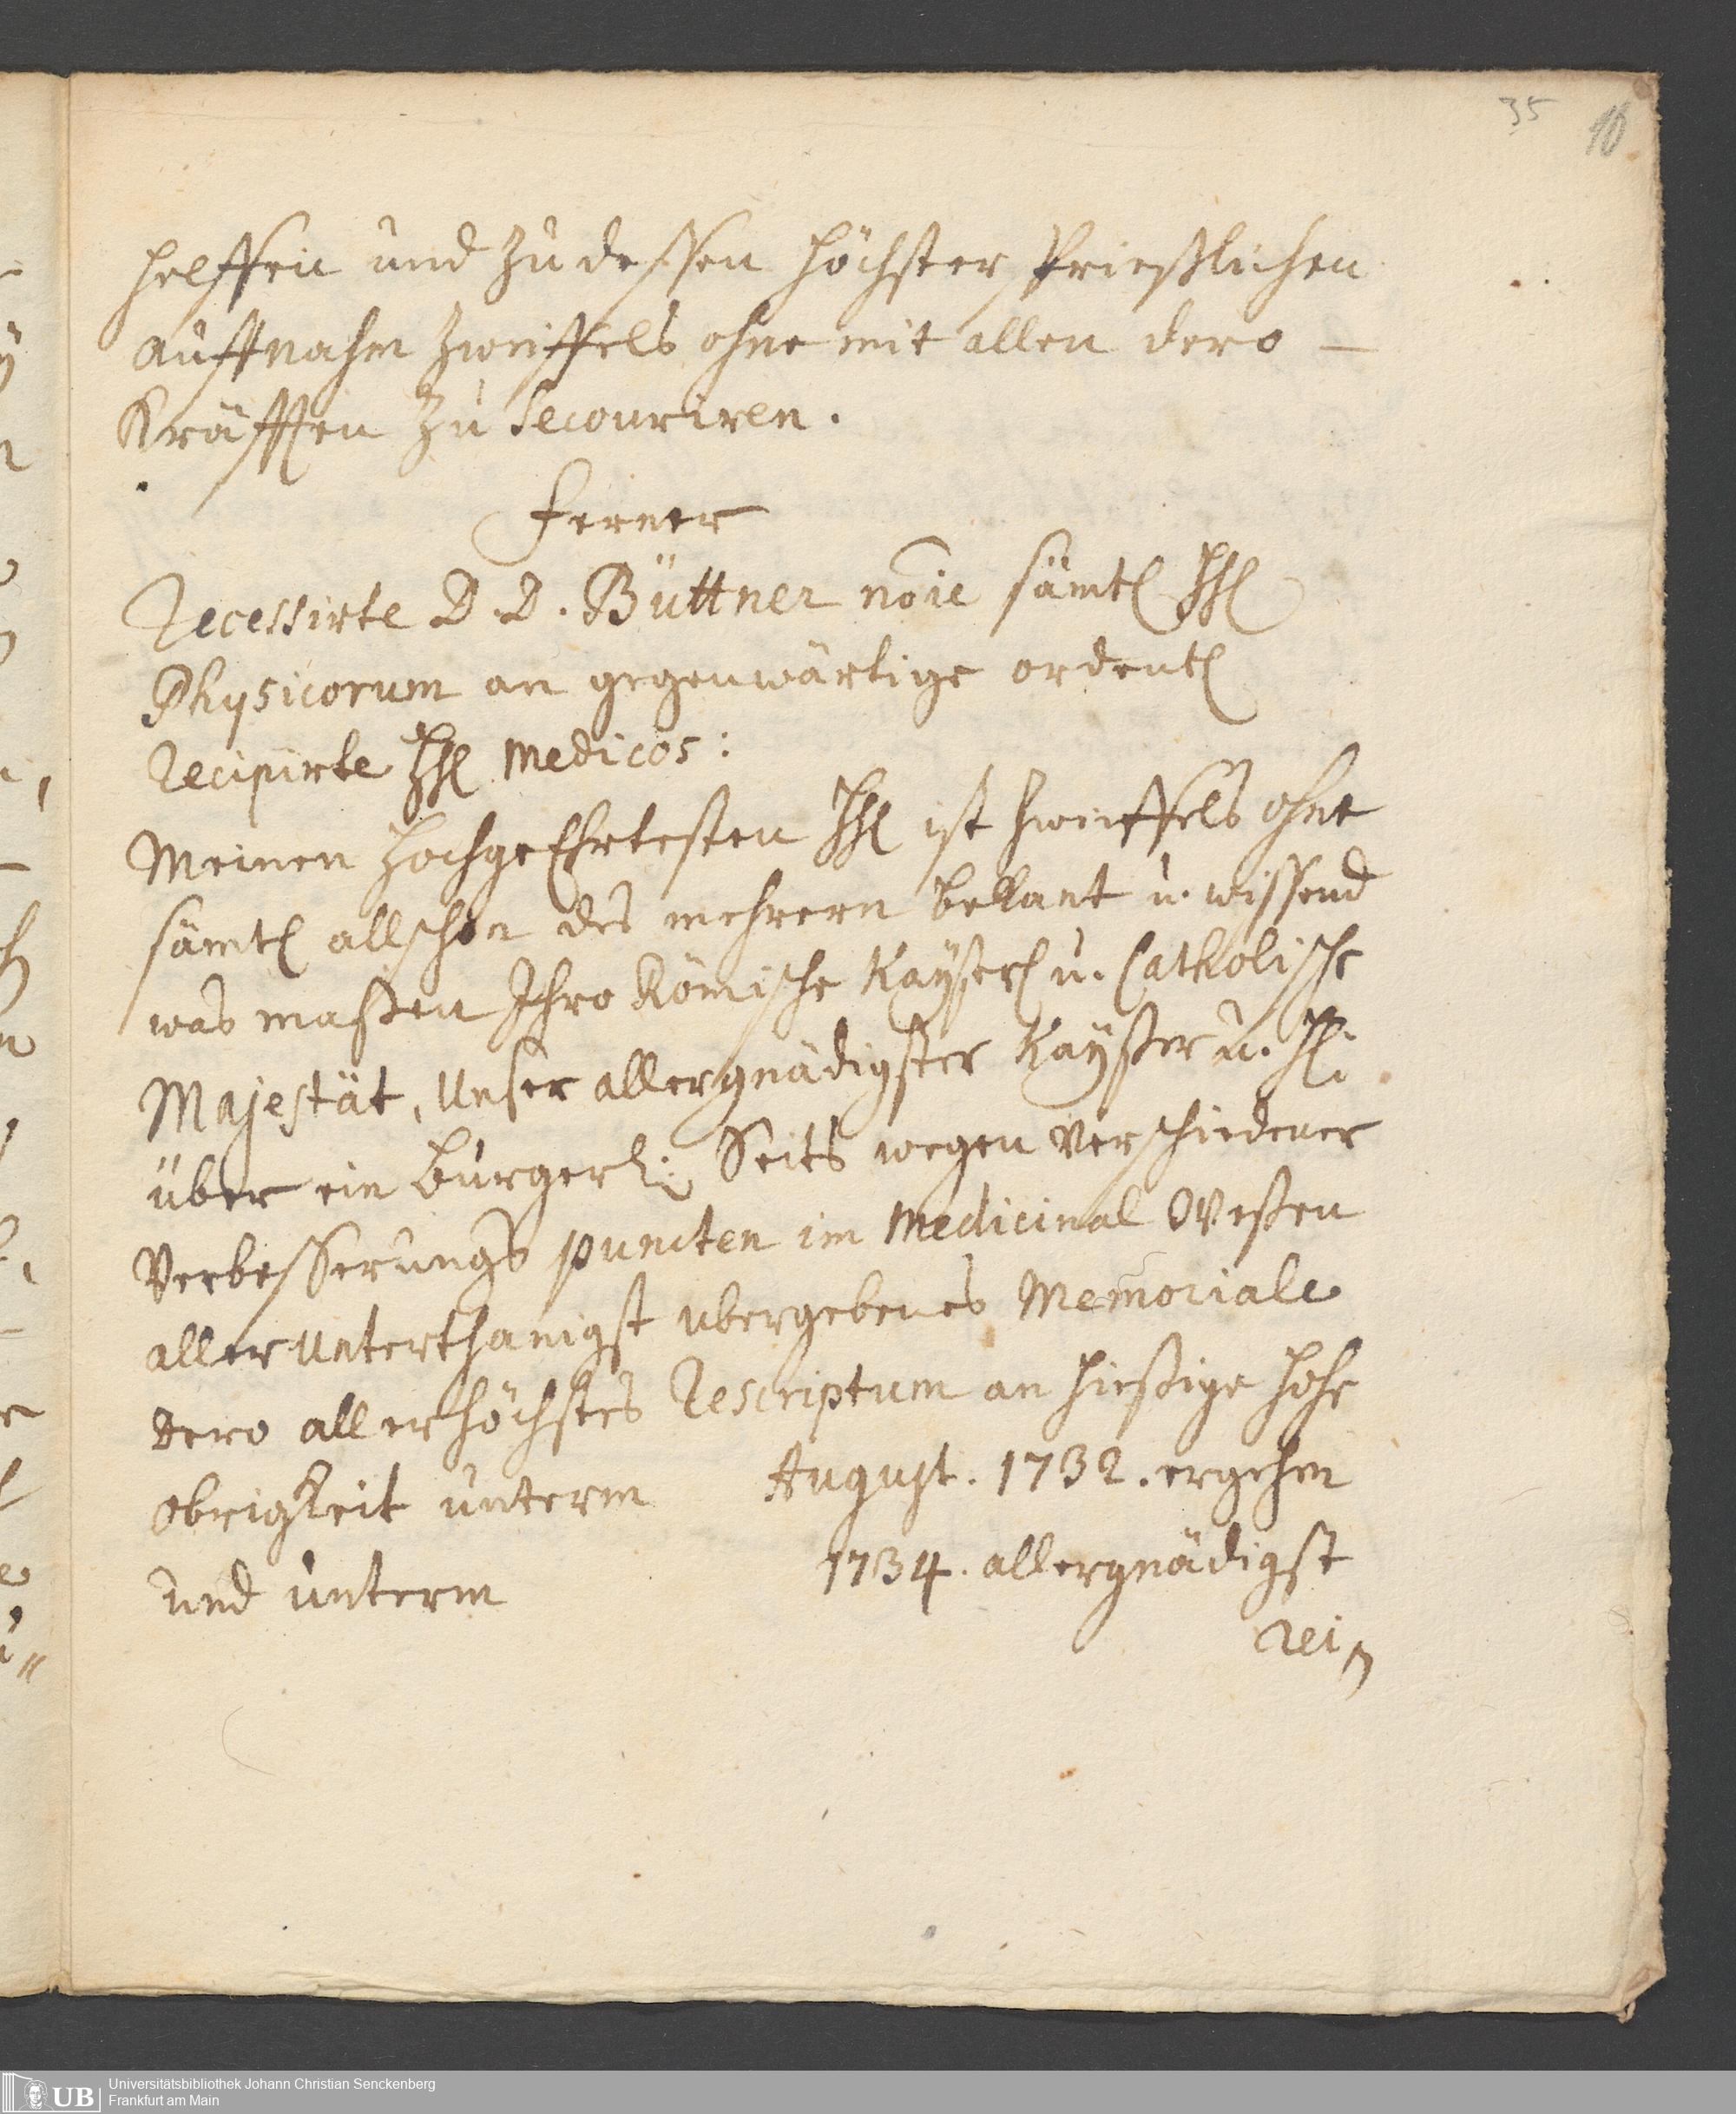 35 10
helffen und zu dessen höchster Ersprießlichen
auffnahm zweiffels ohne mit allen dero —
Kräfften zu secouriren.
Ferner
Recessirte D. D. Büttner noīe sämtl HH
Physicorum an gegenwärtige ordentl
recipirte HH Medicos:
Meinen HochgeEhrtesten HH ist zweiffels ohne
sämtl allschon des mehrern bekant u. wissend
was maßen Ihro Römische Kayserl u. Catholische
Majestät, Unser allergnädigster Kayßer u. H:
über ein Burgerl: Seits wegen verschiedener
Verbesserungs puncten im Medicinal Weßen
allerunterthanigst ubergebenes Memoriale
dero allerhöchstes Rescriptum an hießige hohe
Obrigkeit unterm August. 1732. ergehen
und unterm 1734. allergnädigst
rei
UB Universitätsbibliothek Johann Christian Senckenberg
Frankfurt am Main